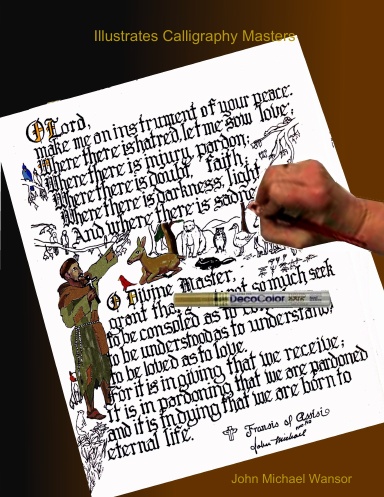 Illustrates Calligraphy Masters
O Lord,
make me an instrument of your peace.
Where there is hatred, let me sow love;
Where there is injury, pardon;
Where there is doubt, faith;
Where there is darkness, light
And where there is sadne
O Divine Master,
grant tha not so much seek
to be consoled as to co
to be understood as to understand,
to be loved as to love.
For it is in giving that we receive;
it is in pardoning that we are pardoned
and it is in dying that we are born to
eternal life.
DecoColor
Francis of Assisi
John Michael
John Michael Wansor